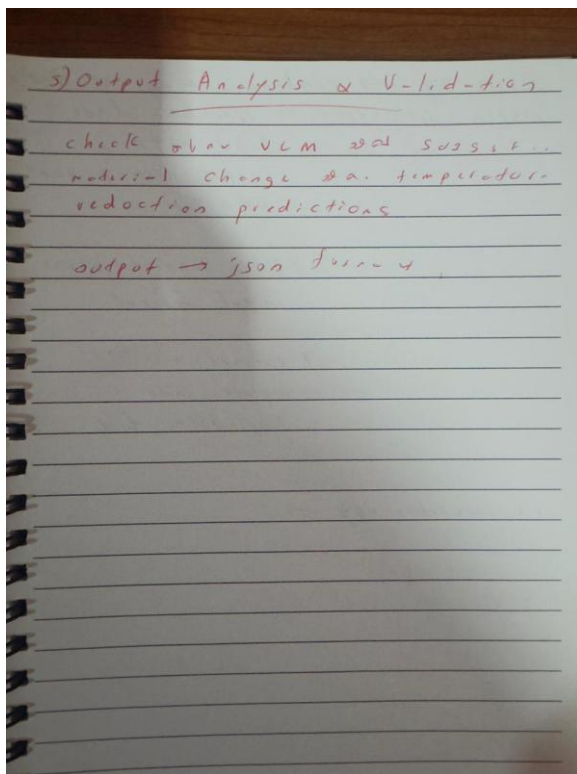 5) Output Analysis & Validation
check VLM suggest
material change temperature
reduction predictions
output → json format